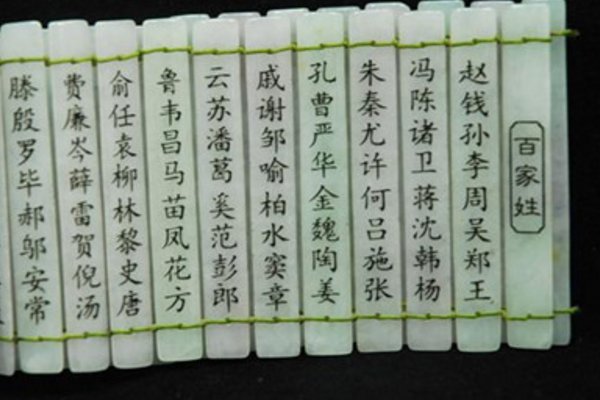 百家姓
赵钱孙李周吴郑王
冯陈诸卫蒋沈韩杨
朱秦尤许何吕施张
孔曹严华金魏陶姜
戚谢邹喻柏水窦章
云苏潘葛奚范彭郎
鲁韦昌马苗凤花方
俞任袁柳林黎史唐
费廉岑薛雷贺倪汤
滕殷罗毕郝邬安常